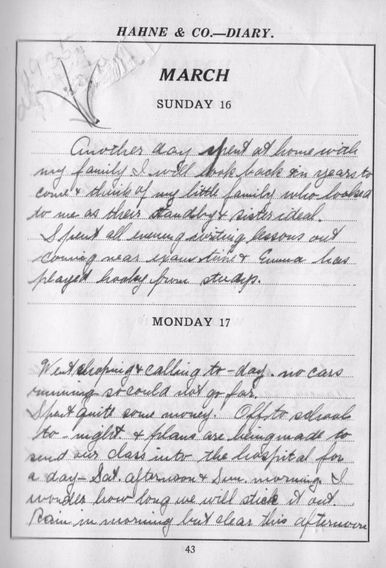 HAHNE & CO.—DIARY.
MARCH
SUNDAY 16
Another day spent at home with
my family I will look back in years to
come & think of my little family who looked
to me as their standby & sister ideal.
Spent all evening writing lessons out
Coming near exam time & Emma has
played hooky from study.
MONDAY 17
Went shoping & calling to-day. no cars
running so could not go far.
Spent quite some money. Off to school
to-night & plans are being made to
send our class into the hospital for
a day—Sat. afternoon & Sun. morning I
wonder how long we will stick it out
Rain in morning but clear this afternoon
43